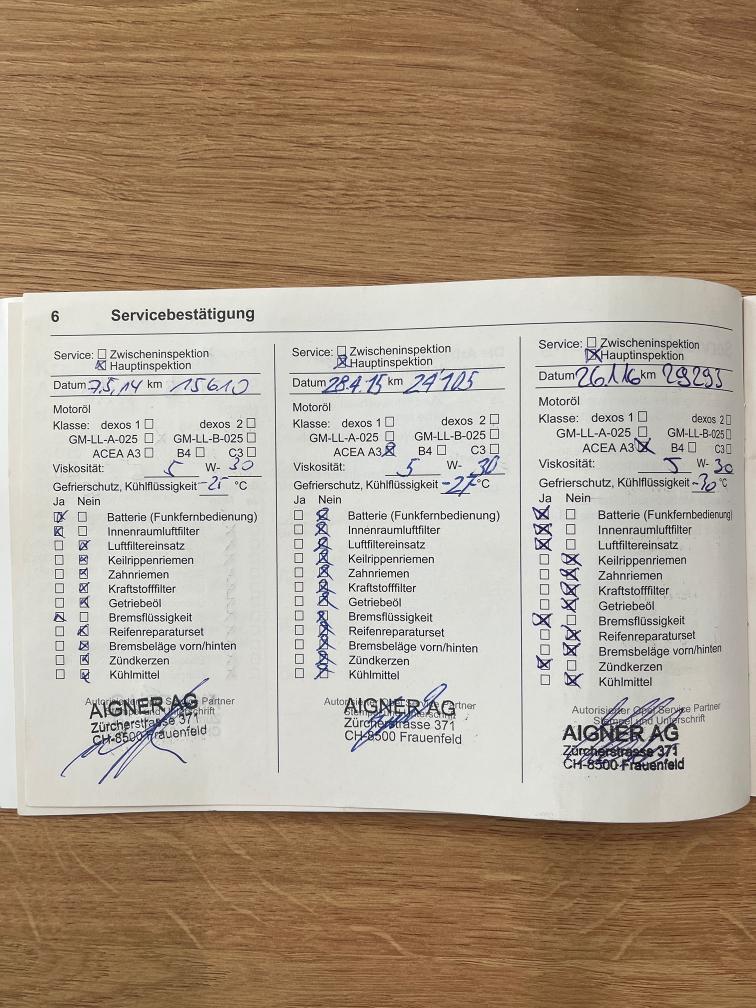 6 Servicebestätigung
Service: Zwischeninspektion
Hauptinspektion
Datum 7.5.14 km 15610
Motoröl
Klasse: dexos 1 dexos 2
GM-LL-A-025 GM-LL-B-025
ACEA A3 B4 C3
Viskosität: 5 W- 30
Gefrierschutz, Kühlflüssigkeit -25 °C
Ja Nein
Batterie (Funkfernbedienung)
Innenraumluftfilter
Luftfiltereinsatz
Keilrippenriemen
Zahnriemen
Kraftstofffilter
Getriebeöl
Bremsflüssigkeit
Reifenreparaturset
Bremsbeläge vorn/hinten
Zündkerzen
Kühlmittel
AIGNER AG
Zürcherstrasse 371
CH-8500 Frauenfeld
Service: Zwischeninspektion
Hauptinspektion
Datum 28.4.15 km 24'105
Motoröl
Klasse: dexos 1 dexos 2
GM-LL-A-025 GM-LL-B-025
ACEA A3 B4 C3
Viskosität: 5 W- 30
Gefrierschutz, Kühlflüssigkeit -27 °C
Ja Nein
Batterie (Funkfernbedienung)
Innenraumluftfilter
Luftfiltereinsatz
Keilrippenriemen
Zahnriemen
Kraftstofffilter
Getriebeöl
Bremsflüssigkeit
Reifenreparaturset
Bremsbeläge vorn/hinten
Zündkerzen
Kühlmittel
AIGNER AG
Zürcherstrasse 371
CH-8500 Frauenfeld
Service: Zwischeninspektion
Hauptinspektion
Datum 26.1.16 km 29293
Motoröl
Klasse: dexos 1 dexos 2
GM-LL-A-025 GM-LL-B-025
ACEA A3 B4 C3
Viskosität: 5 W- 30
Gefrierschutz, Kühlflüssigkeit -30 °C
Ja Nein
Batterie (Funkfernbedienung)
Innenraumluftfilter
Luftfiltereinsatz
Keilrippenriemen
Zahnriemen
Kraftstofffilter
Getriebeöl
Bremsflüssigkeit
Reifenreparaturset
Bremsbeläge vorn/hinten
Zündkerzen
Kühlmittel
Autorisierter Opel Service Partner
Stempel und Unterschrift
AIGNER AG
Zürcherstrasse 371
CH-8500 Frauenfeld